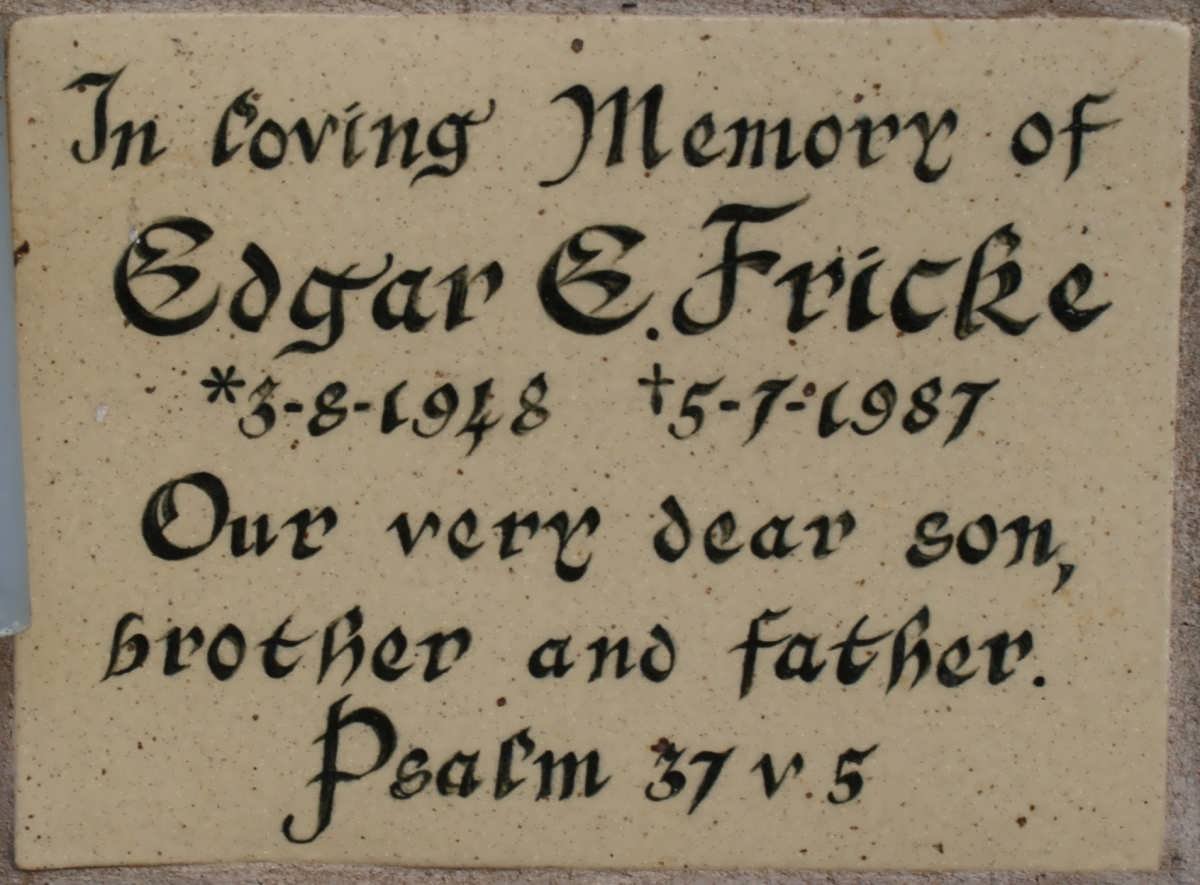 In loving Memory of
Edgar E. Fricke
*3-8-1948 †5-7-1987
Our very dear son,
brother and father.
Psalm 37 v. 5